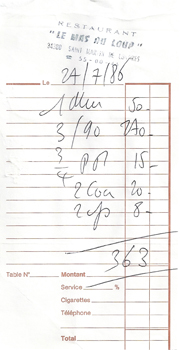 RESTAURANT
"LE MAS DU LOUP"
Le 24/7/86
1 50
3/90 270
3/4 15
2 Coca 20
2 8
363
Table N° Montant
Service %
Cigarettes
Téléphone
Total